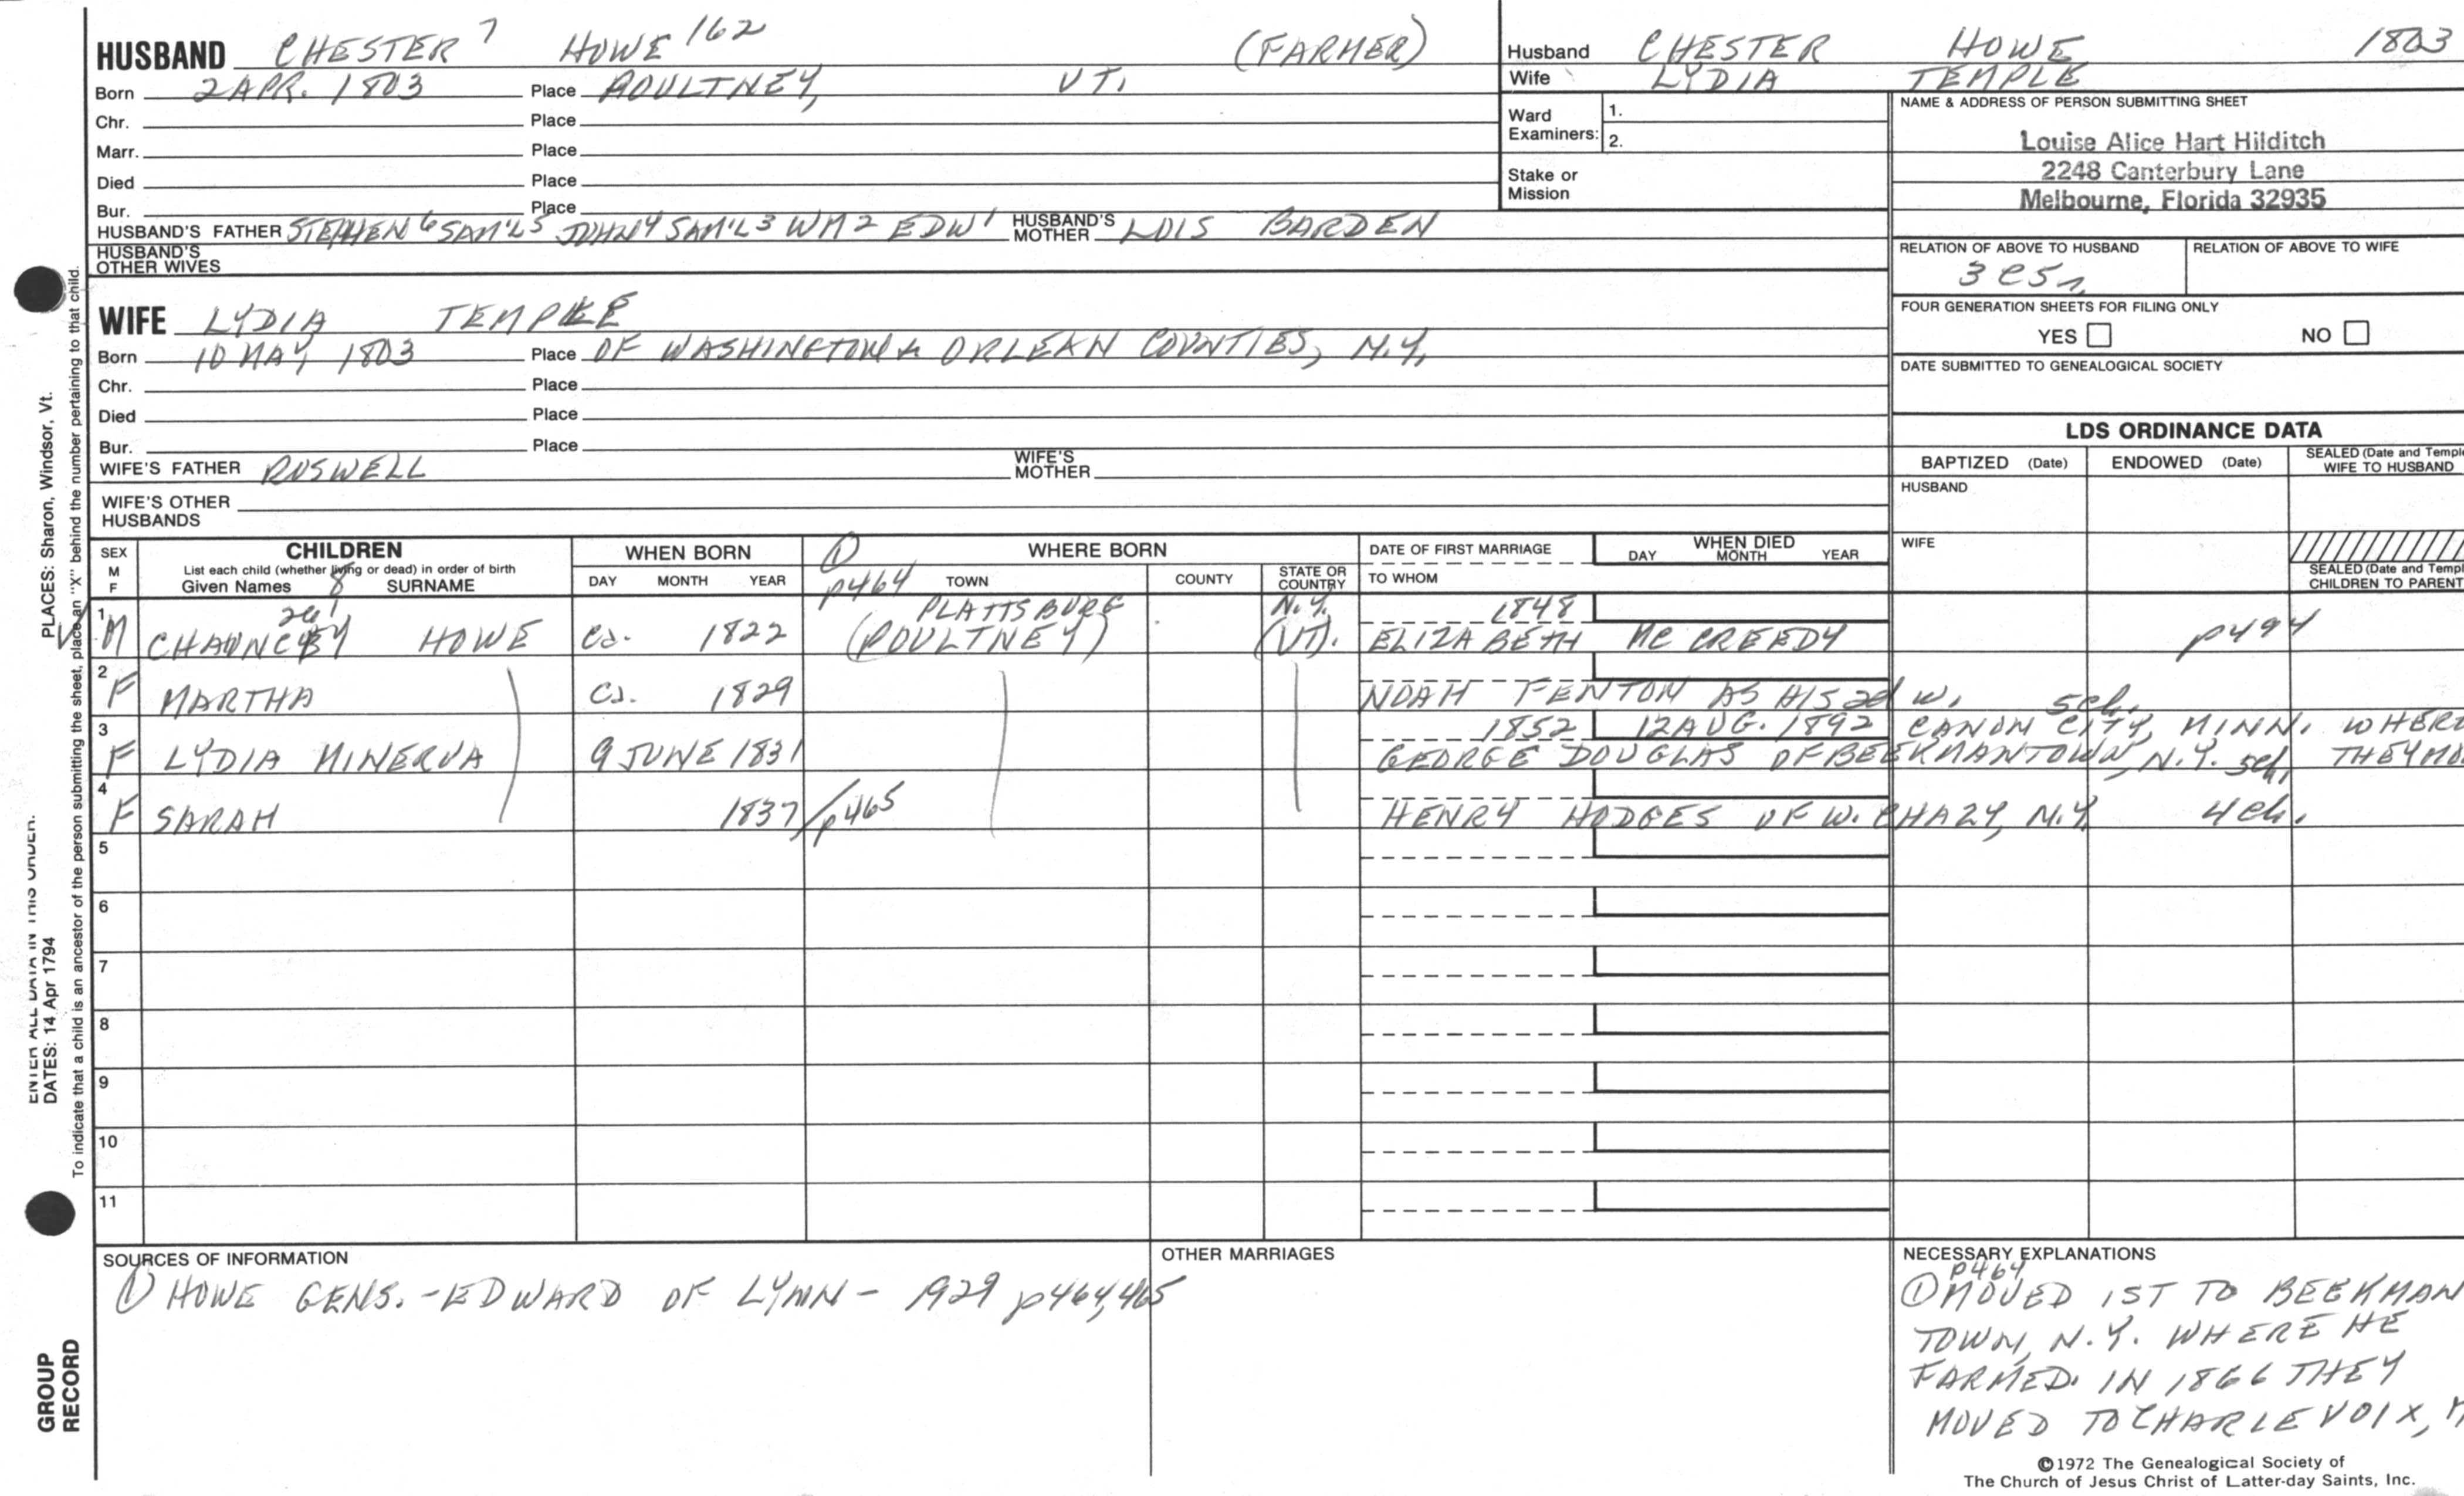 HUSBAND CHESTER 7 HOWE 162 (FARMER)
Born 2 APR. 1803 Place POULTNEY, VT.
Chr. Place
Marr. Place
Died Place
Bur. Place
HUSBAND'S FATHER STEPHEN 6 SAM'L 5 JOHN 4 SAM'L 3 WM 2 EDW 1 HUSBAND'S MOTHER LOIS BARDEN
HUSBAND'S OTHER WIVES
WIFE LYDIA TEMPLE
Born 10 MAY 1803 Place OF WASHINGTON & ORLEAN COUNTIES, N.Y.
Chr. Place
Died Place
Bur. Place
WIFE'S FATHER ROSWELL WIFE'S MOTHER
WIFE'S OTHER HUSBANDS
Husband CHESTER HOWE 1803
Wife LYDIA TEMPLE
Ward Examiners: 1.
2.
Stake or Mission
NAME & ADDRESS OF PERSON SUBMITTING SHEET
Louise Alice Hart Hilditch
2248 Canterbury Lane
Melbourne, Florida 32935
RELATION OF ABOVE TO HUSBAND RELATION OF ABOVE TO WIFE
FOUR GENERATION SHEETS FOR FILING ONLY
YES NO
DATE SUBMITTED TO GENEALOGICAL SOCIETY
LDS ORDINANCE DATA
BAPTIZED (Date) ENDOWED (Date) SEALED (Date and Templ
WIFE TO HUSBAND
HUSBAND
WIFE
SEALED (Date and Templ
CHILDREN TO PARENT
SEX M F CHILDREN WHEN BORN ① WHERE BORN DATE OF FIRST MARRIAGE WHEN DIED
List each child (whether living or dead) in order of birth
Given Names 8 SURNAME DAY MONTH YEAR p464 TOWN COUNTY STATE OR COUNTRY TO WHOM DAY MONTH YEAR
PLATTSBURG N.Y. 1848
1 M CHAUNCEY HOWE Ca. 1822 (POULTNEY) (VT). ELIZABETH MC CREEDY p494
2 F MARTHA Ca. 1829 NOAH FENTON AS HIS 2d w. 5ch.
3 F LYDIA MINERVA 9 JUNE 1831 1852 12 AUG. 1892 CANON CITY, MINN. WHERE
GEORGE DOUGLAS OF BEEKMANTOWN, N.Y. 5ch. THEY MO
4 F SARAH 1837 /p465 HENRY HODGES OF W. CHAZY, N.Y. 4ch.
5
6
7
8
9
10
11
SOURCES OF INFORMATION
① HOWE GENS. - EDWARD OF LYNN - 1929 p464,465
OTHER MARRIAGES
NECESSARY EXPLANATIONS
p464
① MOVED 1ST TO BEEKMAN
TOWN, N.Y. WHERE HE
FARMED. IN 1866 THEY
MOVED TO CHARLEVOIX, M
©1972 The Genealogical Society of
The Church of Jesus Christ of Latter-day Saints, Inc.
PLACES: Sharon, Windsor, Vt.
To indicate that a child is an ancestor of the person submitting the sheet, place an "X" behind the number pertaining to that child.
ENTER ALL DATA IN THIS ORDER.
DATES: 14 Apr 1794
GROUP
RECORD